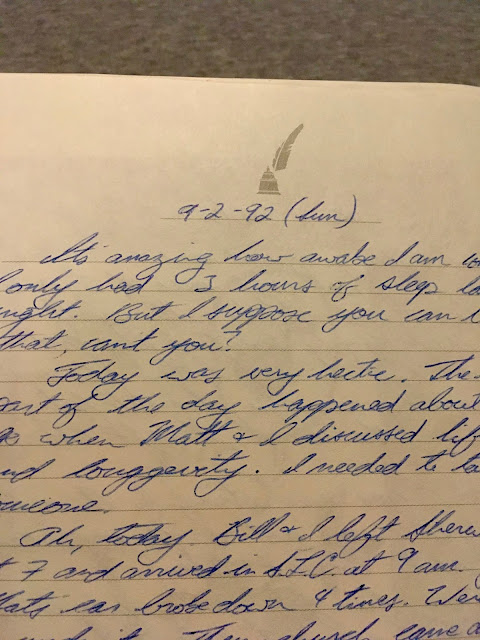 9-2-92 (Sun)
Its amazing how awake I am
I only had 3 hours of sleep la
night. But I suppose you can
that, cant you?
Today was very hectic. The
part of the day happened about
when Matt & I discussed lif
and longgevity. I needed to ta
someone.
Ah, today Bill & I left
at 7 and arrived in S.L.C. at 9 am.
Mats car broke down 4 times. We
made it. Then